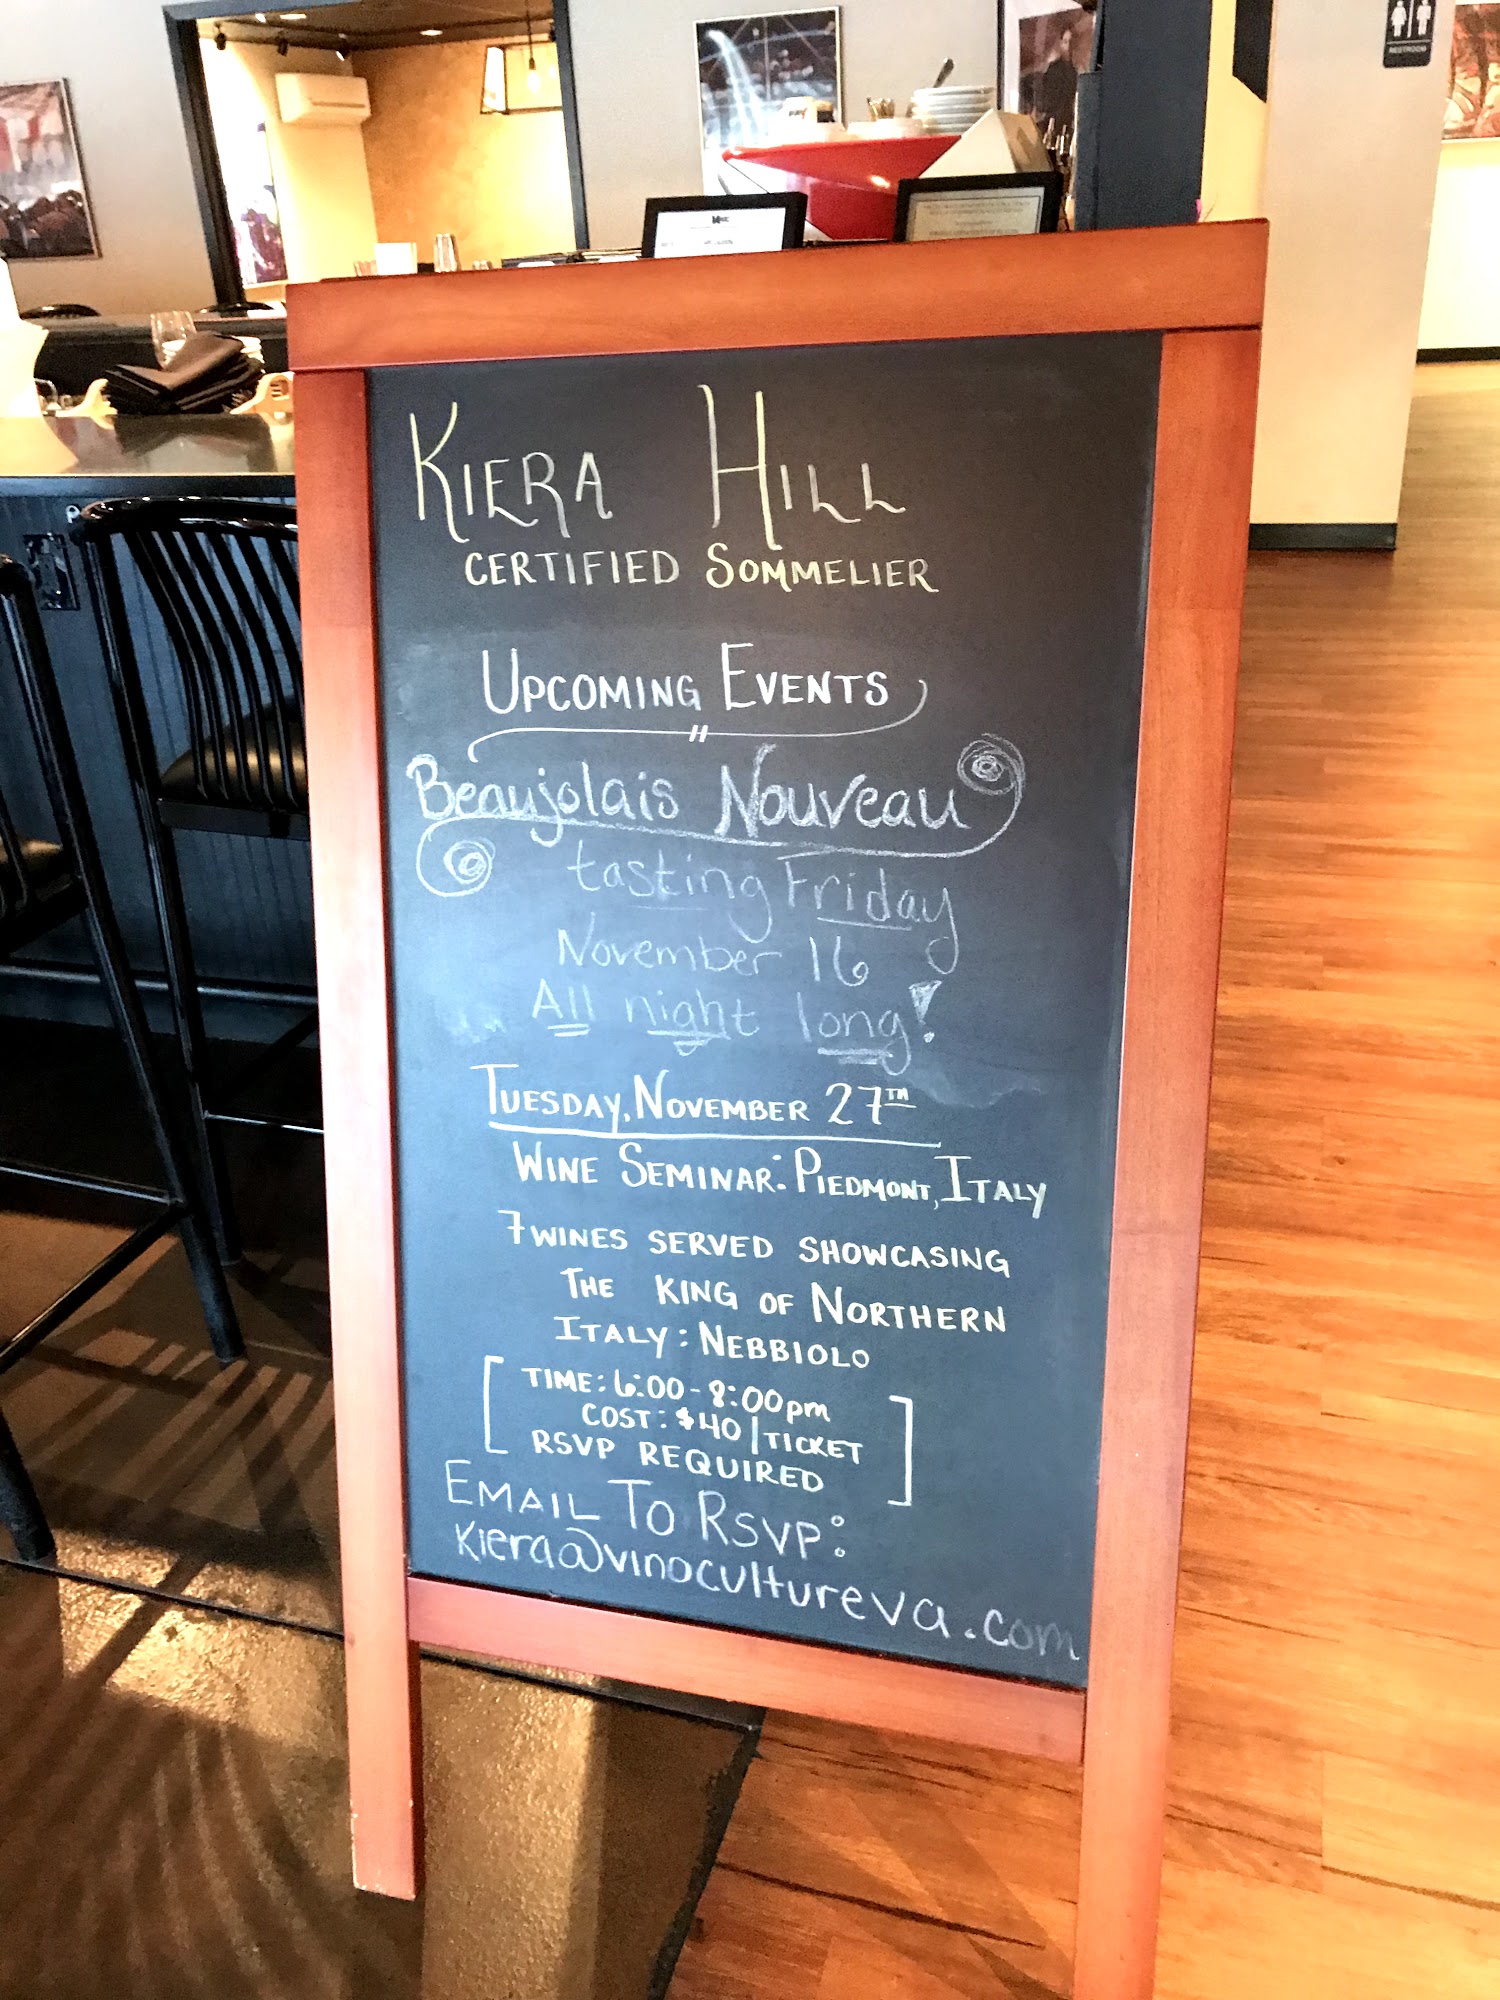 RESTROOM
KIERA HILL
CERTIFIED SOMMELIER
UPCOMING EVENTS
Beaujolais Nouveau
tasting Friday
November 16
All night long!
TUESDAY, NOVEMBER 27TH
WINE SEMINAR: PIEDMONT, ITALY
7 WINES SERVED SHOWCASING
THE KING OF NORTHERN
ITALY: NEBBIOLO
[TIME: 6:00-8:00pm
COST: $40/TICKET
RSVP REQUIRED]
EMAIL TO RSVP:
kiera@vinocultureva.com